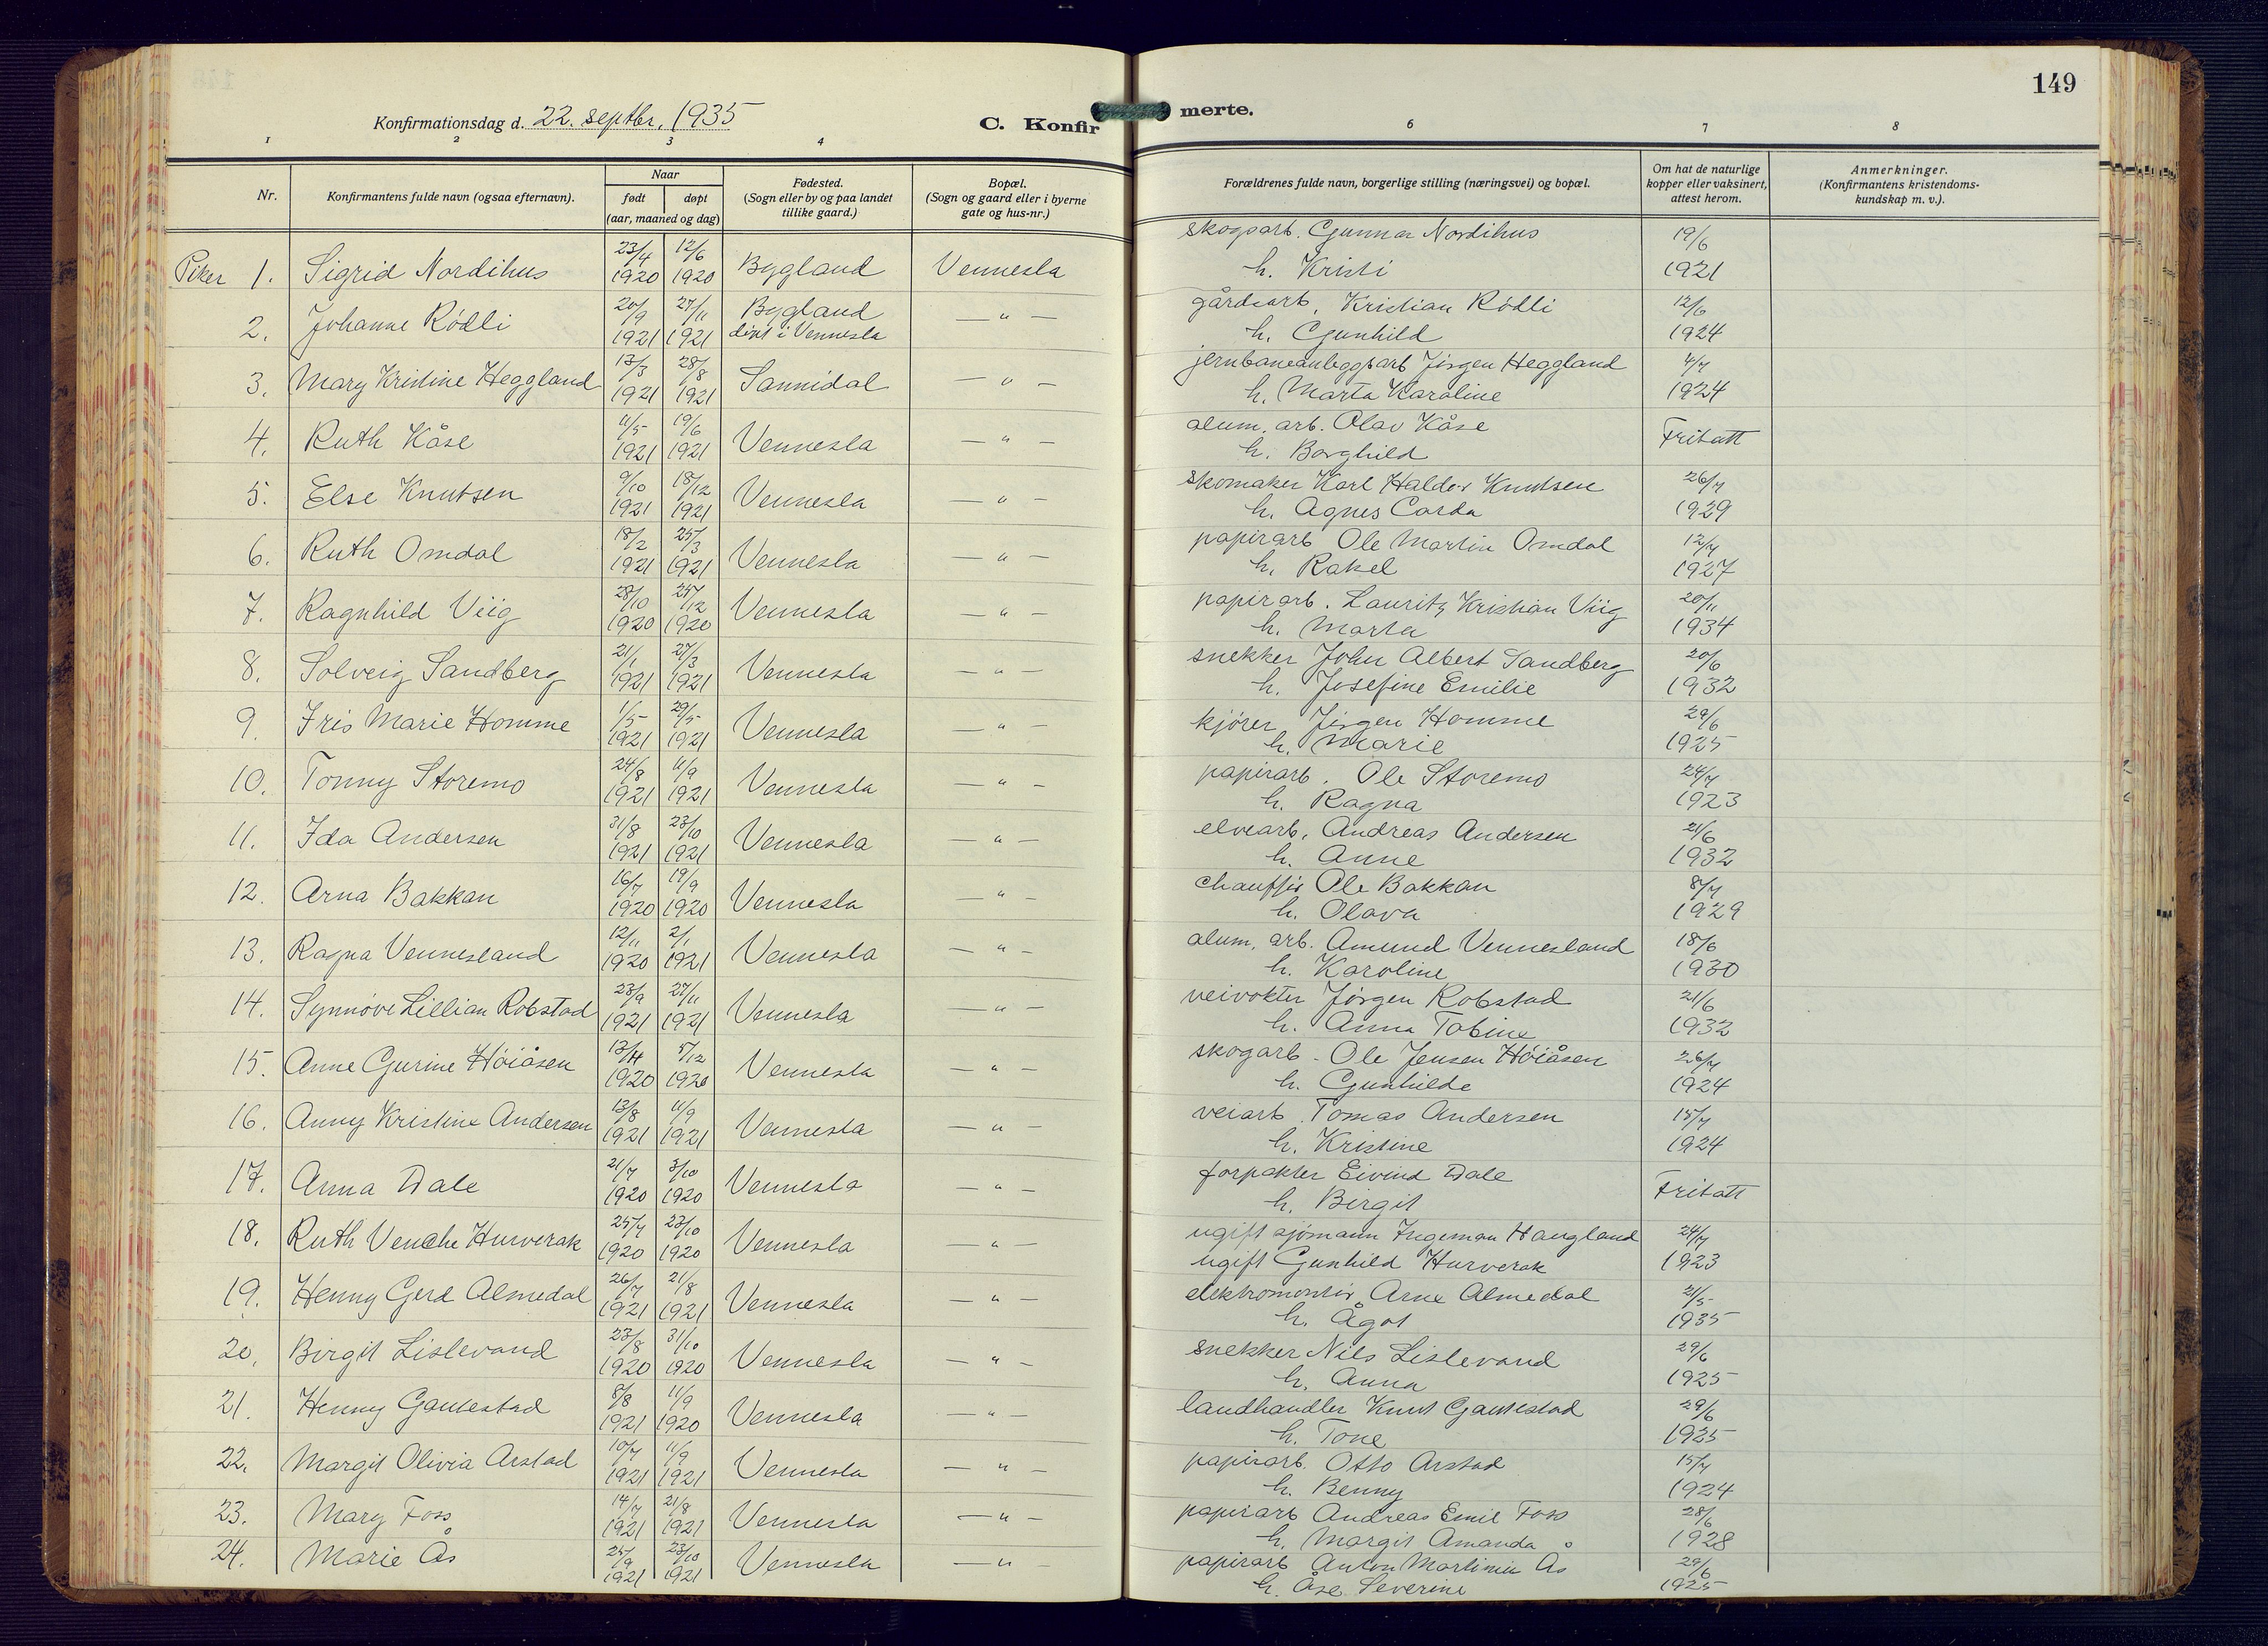 149
Konfirmationsdag d. 22. septbr. 1935
C. Konfirmerte.
1 2 3 4 6 7 8
Nr.
Konfirmantens fulde navn (ogsaa efternavn).
Naar
født døpt
(aar, maaned og dag)
Fødested.
(Sogn eller by og paa landet
tillike gaard.)
Bopæl.
(Sogn og gaard eller i byerne
gate og hus-nr.)
Forældrenes fulde navn, borgerlige stilling (næringsvei) og bopæl.
Om hat de naturlige
kopper eller vaksinert,
attest herom.
Anmerkninger.
(Konfirmantens kristendoms-
kundskap m. v.).
Piker 1. Sigrid Nordihus 23/4 1920 12/6 1920 Bygland Vennesla skogsarb. Gunnar Nordihus 19/6
h. Kristi 1921
2. Johanne Rødli 20/9 1921 27/11 1921 Bygland — " — gårdsarb. Kristian Rødli 12/6
døpt i Vennesla h. Gunhild 1924
3. Mary Kristine Heggland 13/3 1921 28/8 1921 Sannidal — " — jernbaneanleggsarb Jørgen Heggland 4/7
h. Marta Karoline 1924
4. Ruth Kåse 11/5 1921 19/6 1921 Vennesla — " — alum. arb. Olav Kåse Fritatt
h. Borghild
5. Else Knutsen 9/10 1921 18/12 1921 Vennesla — " — skomaker Karl Haldor Knutsen 26/7
h. Agnes Corda 1929
6. Ruth Omdal 18/2 1921 25/3 1921 Vennesla — " — papirarb Ole Martin Omdal 12/7
h. Rakel 1927
7. Ragnhild Viig 28/10 1920 25/12 1920 Vennesla — " — papirarb. Lauritz Kristian Viig 20/11
h. Marta 1934
8. Solveig Sandberg 21/1 1921 27/3 1921 Vennesla — " — snekker John Albert Sandberg 20/6
h. Josefine Emilie 1932
9. Iris Marie Homme 1/5 1921 29/5 1921 Vennesla — " — kjører Jørgen Homme 29/6
h. Marie 1925
10. Tonny Storemo 24/8 1921 11/9 1921 Vennesla — " — papirarb. Ole Storemo 24/7
h. Ragna 1923
11. Ida Andersen 31/8 1921 23/10 1921 Vennesla — " — elvearb. Andreas Andersen 21/6
h. Anne 1932
12. Arna Bakkan 16/7 1920 19/9 1920 Vennesla — " — chauffør Ole Bakkan 8/7
h. Olava 1929
13. Ragna Vennesland 12/11 1920 2/1 1921 Vennesla — " — alum. arb. Amund Vennesland 18/6
h. Karoline 1930
14. Synnøve Lillian Robstad 23/9 1921 27/11 1921 Vennesla — " — veivokter Jørgen Robstad 21/6
h. Anna Tobine 1932
15. Anne Gurine Høiåsen 13/11 1920 5/12 1920 Vennesla — " — skogarb - Ole Jensen Høiåsen 26/7
h. Gunhilde 1924
16. Anny Kristine Andersen 13/8 1921 11/9 1921 Vennesla — " — veiarb. Tomas Andersen 15/7
h. Kristine 1924
17. Anna Dale 21/7 1920 3/10 1920 Vennesla — " — forpakter Eivind Dale Fritatt
h. Birgit
18. Ruth Venche Hurverak 25/7 1920 23/10 1920 Vennesla — " — ugift sjømann Ingeman Haugland 24/7
ugift Gunhild Hurverak 1923
19. Henny Gerd Almedal 26/7 1921 21/8 1921 Vennesla — " — elektromontør Arne Almedal 21/5
h. Ågot 1935
20. Birgit Lislevand 23/8 1920 31/10 1920 Vennesla — " — snekker Nils Lislevand 29/6
h. Anna 1925
21. Henny Gautestad 8/8 1921 11/9 1920 Vennesla — " — landhandler Knut Gautestad 29/6
h. Tone 1925
22. Margit Olivia Arstad 10/7 1921 11/9 1921 Vennesla — " — papirarb. Otto Arstad 15/7
h. Benny 1924
23. Mary Foss 14/7 1921 21/8 1921 Vennesla — " — papirarb Andreas Emil Foss 28/6
h. Margit Amanda 1928
24. Marie Ås 25/9 1921 23/10 1921 Vennesla — " — papirarb Anton Martinius Ås 29/6
h. Åse Severine 1925